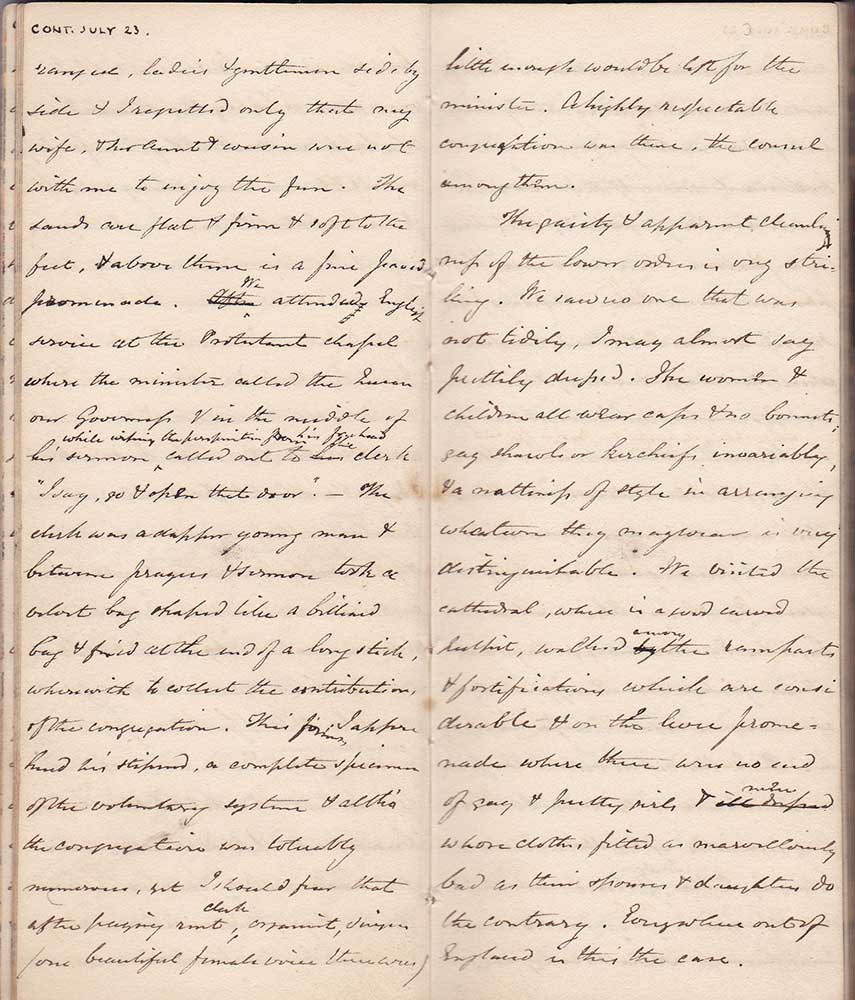 CONT. JULY 23.
ranged, ladies & gentlemen side by
side & I regretted only that my
wife, & her Aunt & cousin were not
with me to enjoy the fun. The
sands are flat & firm & soft to the
feet, & above them is a fine paved
promenade. We attended English
service at the Protestant chapel
where the minister called the Queen
our Governess & in the middle of
while wiping the perspiration from his forehead
his sermon called out to the clerk
"I say, go & open that door". — The
clerk was a dapper young man &
between prayers & sermon took a
velvet bag shaped like a billiard
bag & fixed at the end of a long stick,
wherewith to collect the contributions
of the congregation. This forms, I appre
hend his stipend, a complete specimen
of the voluntary system & altho'
the congregation was tolerably
numerous, yet I should fear that
after paying rent, clerk, organist, singers
(one beautiful female voice there was)
little enough would be left for the
minister. A highly respectable
congregation was there, the consul
among them.
The gaiety & apparent cleanli
ness of the lower orders is very stri-
king. We saw no one that was
not tidily, I may almost say
prettily dressed. The women &
children all wear caps & no bonnets,
gay shawls or kerchiefs invariably,
& a nattiness of style in arranging
whatever they may wear is very
distinguishable. We visited the
cathedral, where is a good carved
pulpit, walked among the ramparts
& fortifications which are consi
derable & on the levee prome=
nade where there was no end
of gay & pretty girls & men
whose clothes fitted as marvellously
bad as their spouses & daughters do
the contrary. Everywhere out of
England is this the case.